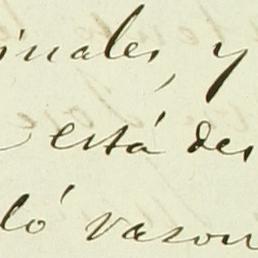 inales, y
está des
ló vason